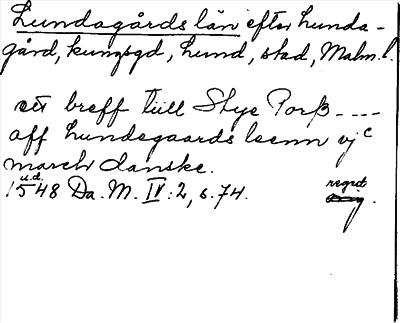 Lundagårds län efter Lunda-
gård, kungsgd, Lund, stad, Malm. l.
ett breff till Stye Porß ----
aff Lundegaards leenn vj c
march danske.
u.d.
1548 Da. M. IV: 2, s. 74. regist